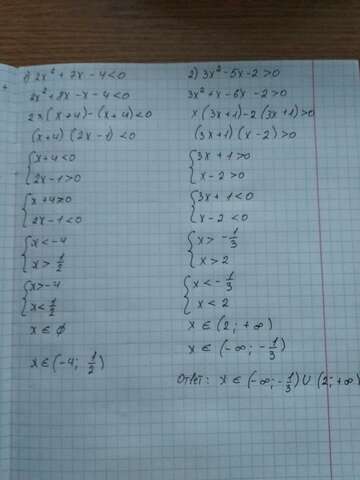 1) 2x² + 7x - 4 < 0
2x² + 8x - x - 4 < 0
2x(x+4) - (x+4) < 0
(x+4) (2x-1) < 0
{x+4 < 0
{2x-1 > 0
{x+4 > 0
{2x-1 < 0
{x < -4
{x > 1/2
{x > -4
{x < 1/2
x ∈ ∅
x ∈ (-4; 1/2)
2) 3x² - 5x - 2 > 0
3x² + x - 6x - 2 > 0
x(3x+1) - 2(3x+1) > 0
(3x+1)(x-2) > 0
{3x+1 > 0
{x-2 > 0
{3x+1 < 0
{x-2 < 0
{x > -1/3
{x > 2
{x < -1/3
{x < 2
x ∈ (2; +∞)
x ∈ (-∞; -1/3)
Ответ: x ∈ (-∞; -1/3) ∪ (2; +∞)